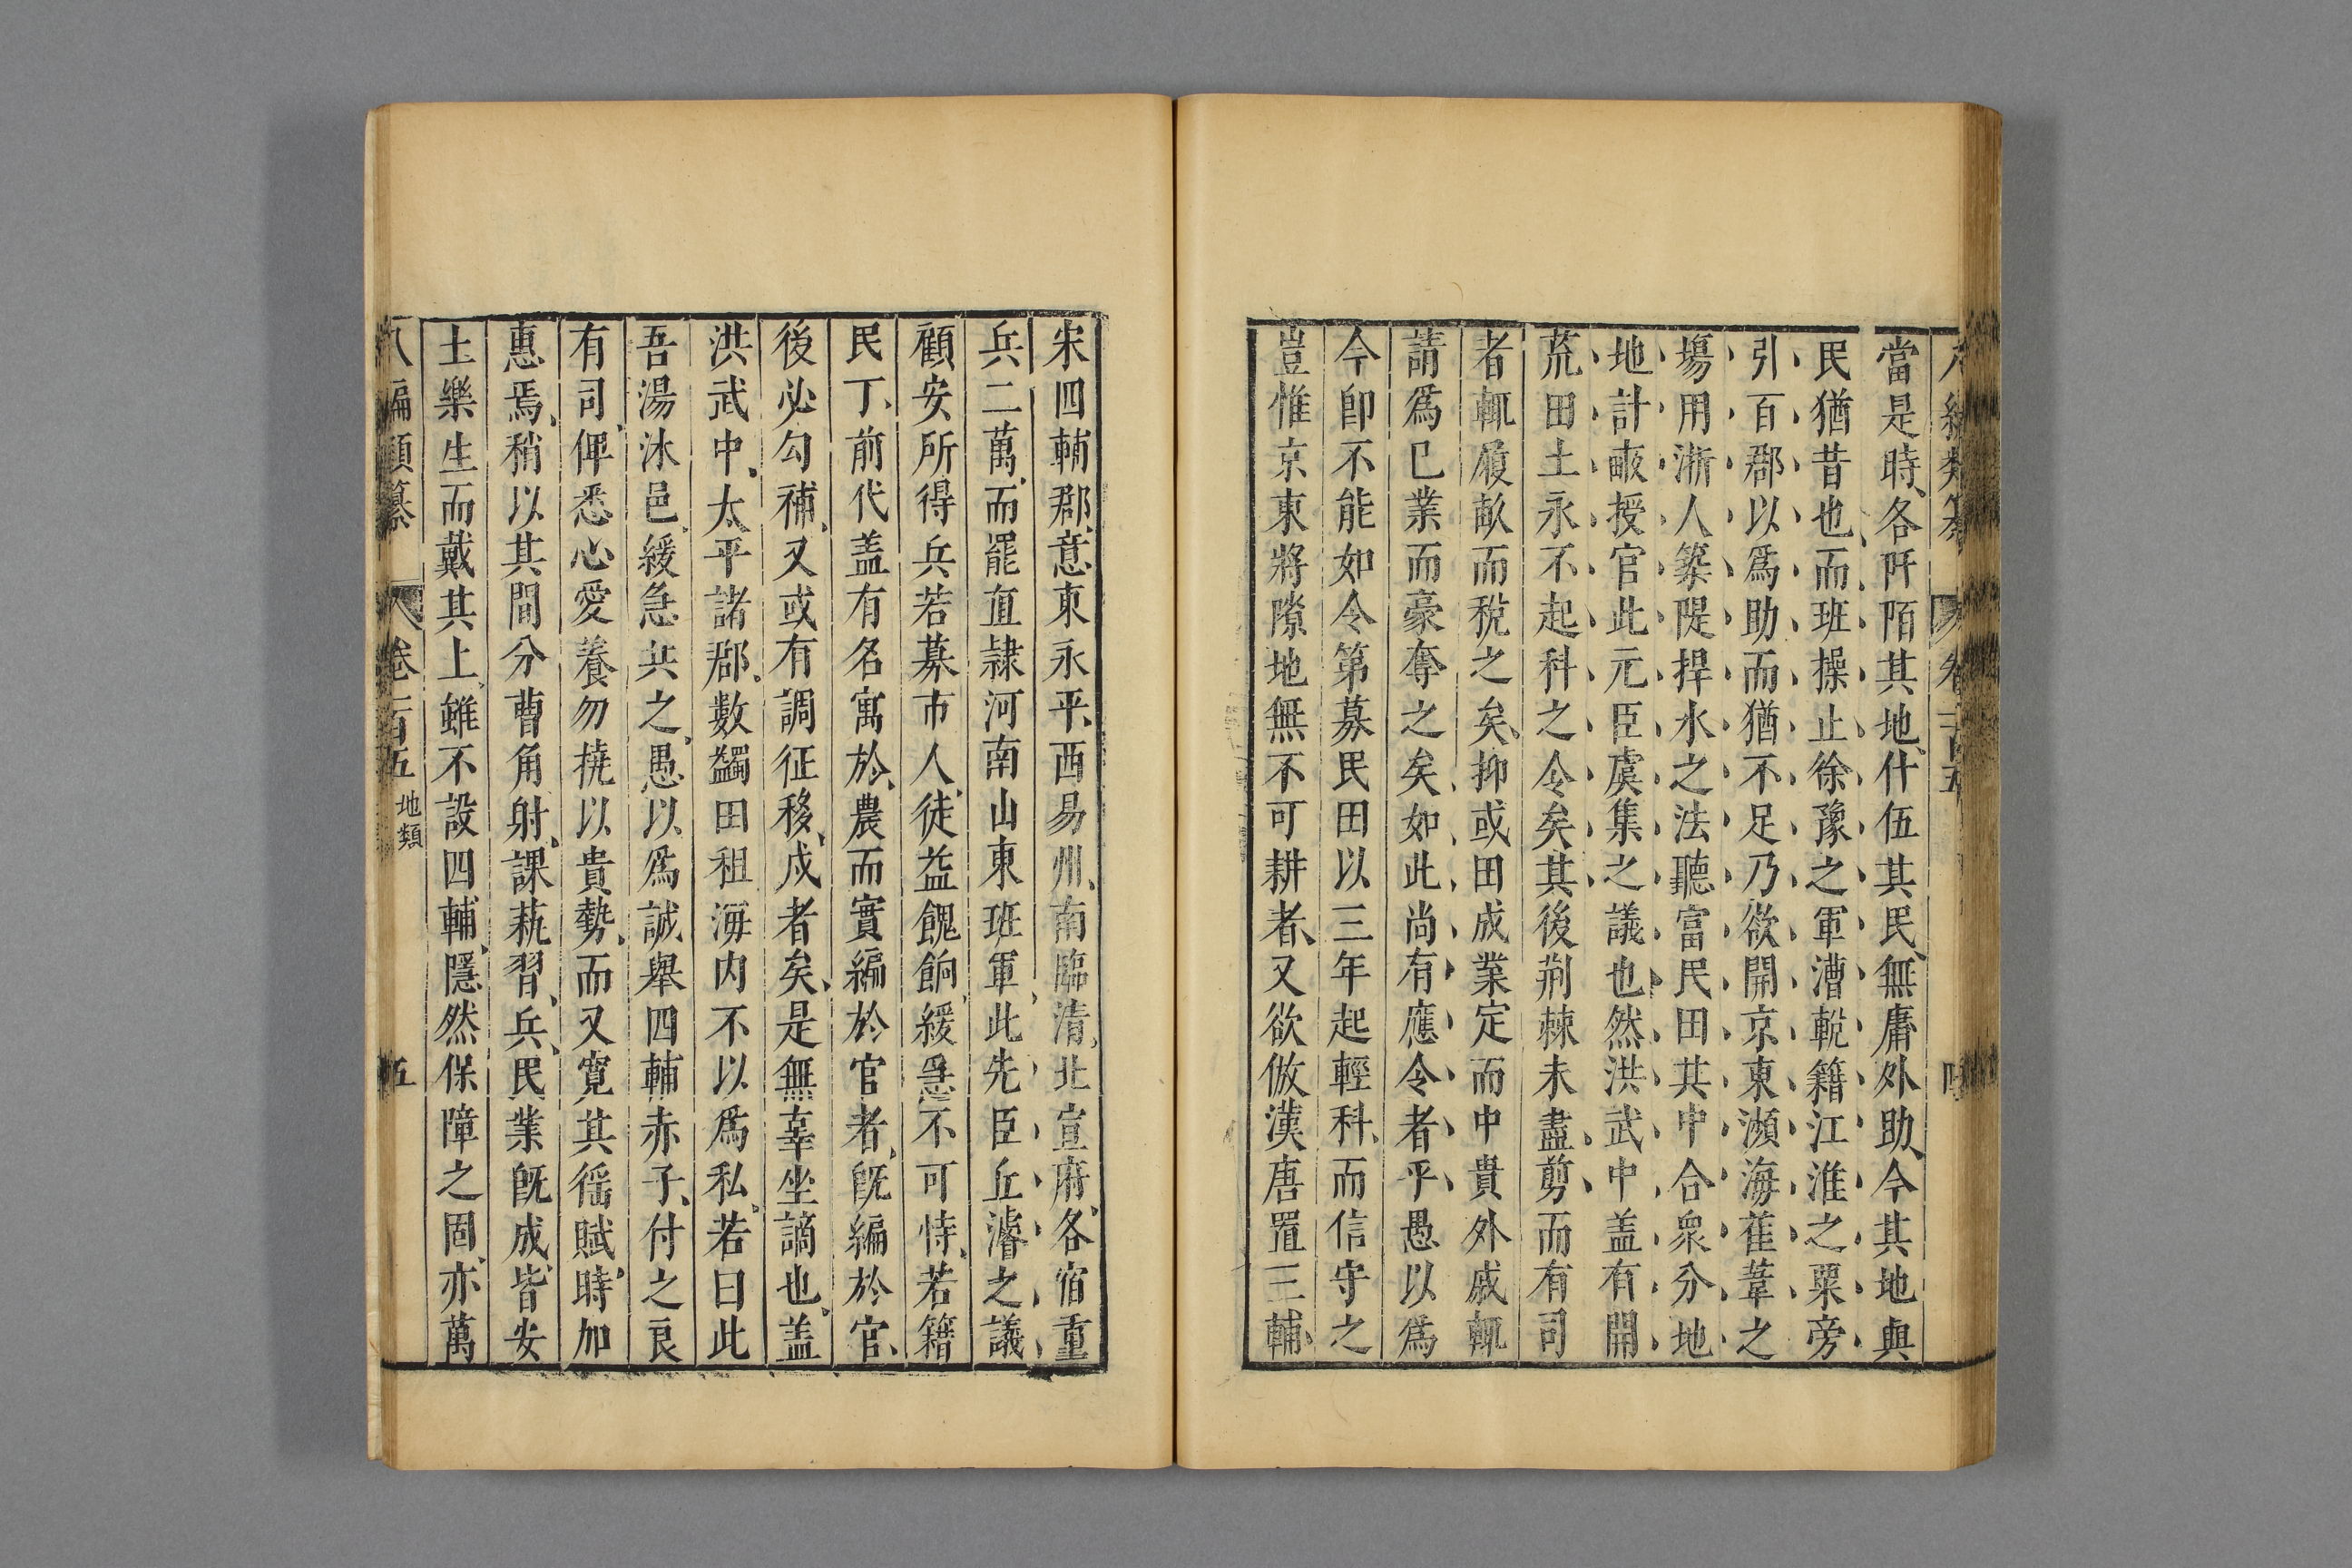 當是時各阡陌其地什伍其民無庸外助今其地與
民猶昔也而班操止徐豫之軍漕輓籍江淮之粟旁
引百郡以爲助而猶不足乃欲開京東瀕海萑葦之
塲用浙人築隄捍水之法聽富民田其中合衆分地
地計畝授官此元臣虞集之議也然洪武中盖有開
荒田土永不起科之令矣其後荊棘未盡剪而有司
者輒履畝而稅之矣抑或田成業定而中貴外戚輒
請爲已業而豪奪之矣如此尚有應令者乎愚以爲
今卽不能如令第募民田以三年起輕科而信守之
豈惟京東將隙地無不可耕者又欲倣漢唐置三輔
宋四輔郡意東永平西易州南臨清北宣府各宿重
兵二萬而罷直隷河南山東班軍此先臣丘濬之議
顧安所得兵若募市人徒益餽餉緩急不可恃若籍
民丁前代盖有名寓於農而實編於官者旣編於官
後必勾補又或有調征移戍者矣是無辜坐謫也盖
洪武中太平諸郡數蠲田租海内不以爲私若曰此
吾湯沐邑緩急共之愚以爲誠舉四輔赤子付之良
有司俾悉心愛養勿撓以貴勢而又寬其徭賦時加
惠焉稍以其間分曹角射課蓺習兵民業旣成皆安
土樂生而戴其上雖不設四輔隱然保障之固亦萬
八編類纂 卷一百五 地類 五